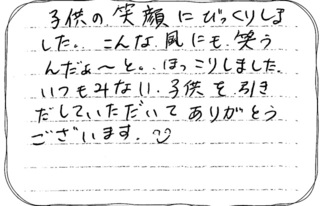 子供の笑顔にびっくりしま
した。こんな風にも笑う
んだぁ～と。ほっこりしました。
いつもみない子供を引き
だしていただいてありがとう
ございます。